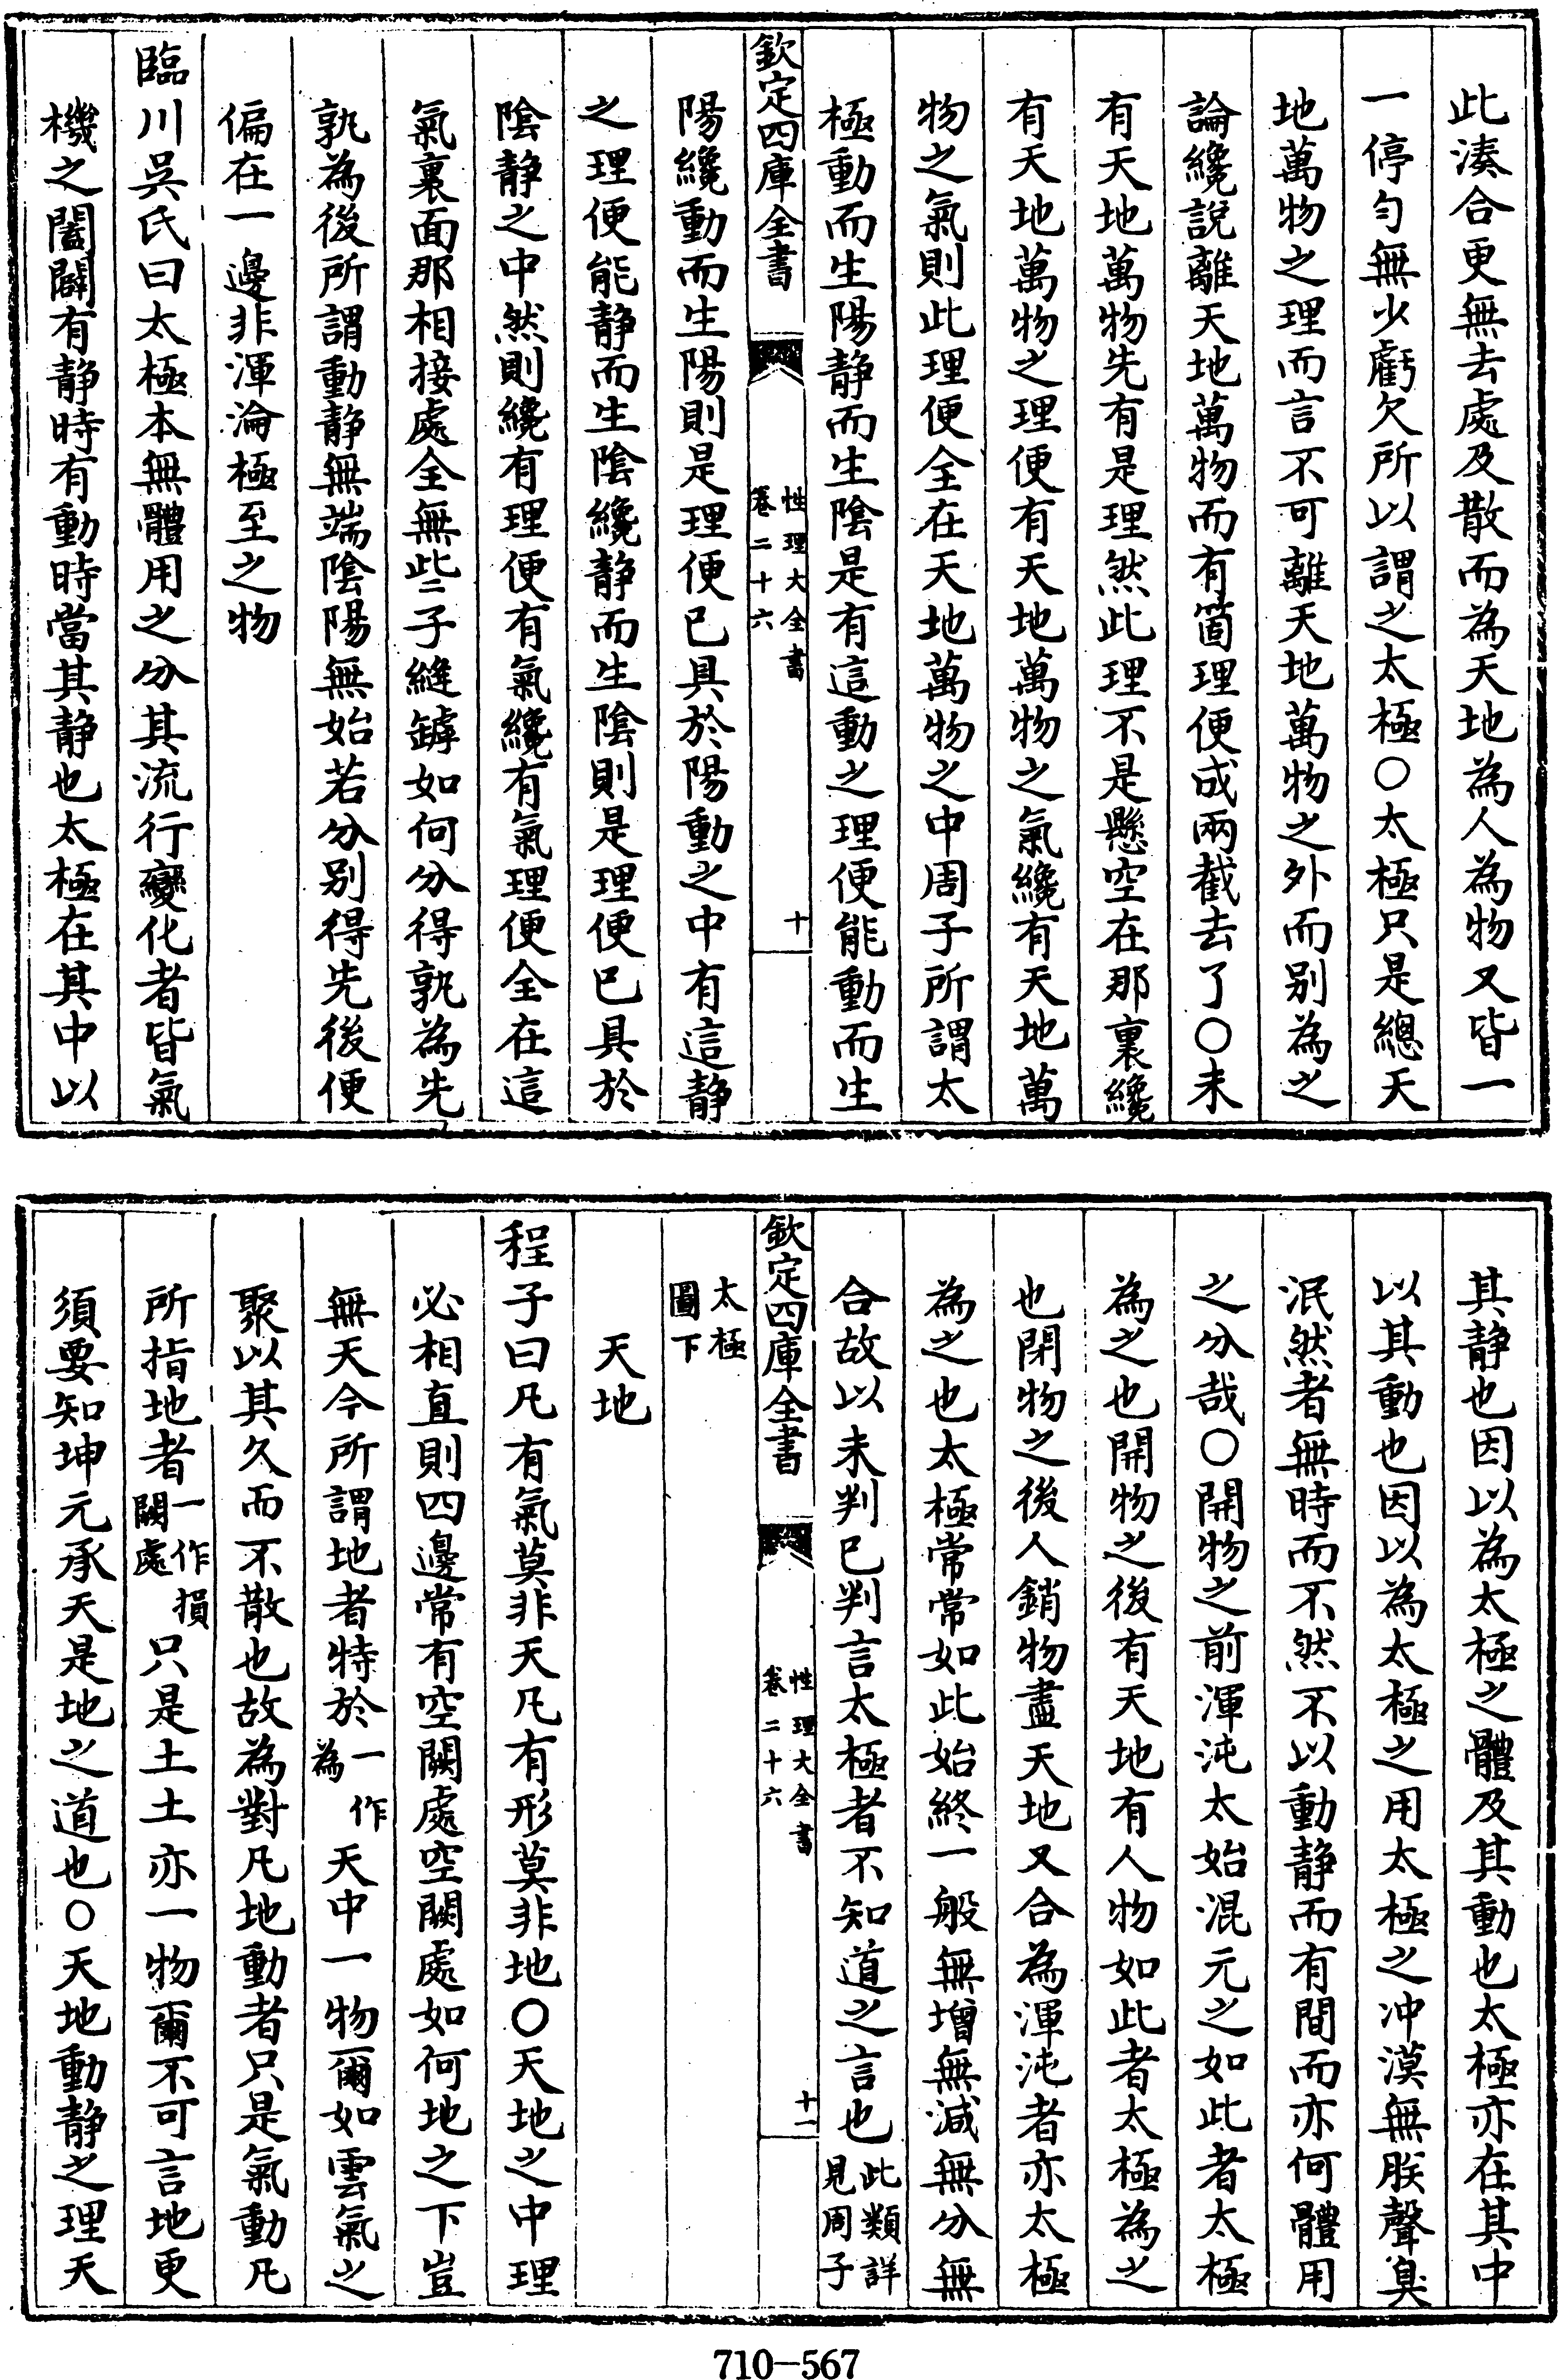 此湊合更無去處及散而為天地為人為物又皆一
一停勻無少虧欠所以謂之太極○太極只是總天
地萬物之理而言不可離天地萬物之外而别為之
論纔說離天地萬物而有箇理便成兩截去了○未
有天地萬物先有是理然此理不是懸空在那裏纔
有天地萬物之理便有天地萬物之氣纔有天地萬
物之氣則此理便全在天地萬物之中周子所謂太
極動而生陽静而生陰是有這動之理便能動而生
欽定四庫全書
性理大全書
卷二十六
十
陽纔動而生陽則是理便已具於陽動之中有這静
之理便能静而生陰纔静而生陰則是理便已具於
陰静之中然則纔有理便有氣纔有氣理便全在這
氣裏面那相接處全無些子縫罅如何分得孰為先
孰為後所謂動静無端陰陽無始若分别得先後便
偏在一邊非渾淪極至之物
臨川吳氏曰太極本無體用之分其流行變化者皆氣
機之闔闢有静時有動時當其静也太極在其中以
其静也因以為太極之體及其動也太極亦在其中
以其動也因以為太極之用太極之冲漠無朕聲臭
泯然者無時而不然不以動静而有間而亦何體用
之分哉○開物之前渾沌太始混元之如此者太極
為之也開物之後有天地有人物如此者太極為之
也閉物之後人銷物盡天地又合為渾沌者亦太極
為之也太極常常如此始終一般無增無減無分無
合故以未判已判言太極者不知道之言也此類詳見周子
欽定四庫全書
性理大全書
卷二十六
十一
太極圖下
天地
程子曰凡有氣莫非天凡有形莫非地○天地之中理
必相直則四邊常有空闕處空闕處如何地之下豈
無天今所謂地者特於一作為天中一物爾如雲氣之
聚以其久而不散也故為對凡地動者只是氣動凡
所指地者一作損闕處只是土土亦一物爾不可言地更
須要知坤元承天是地之道也○天地動静之理天
710-567